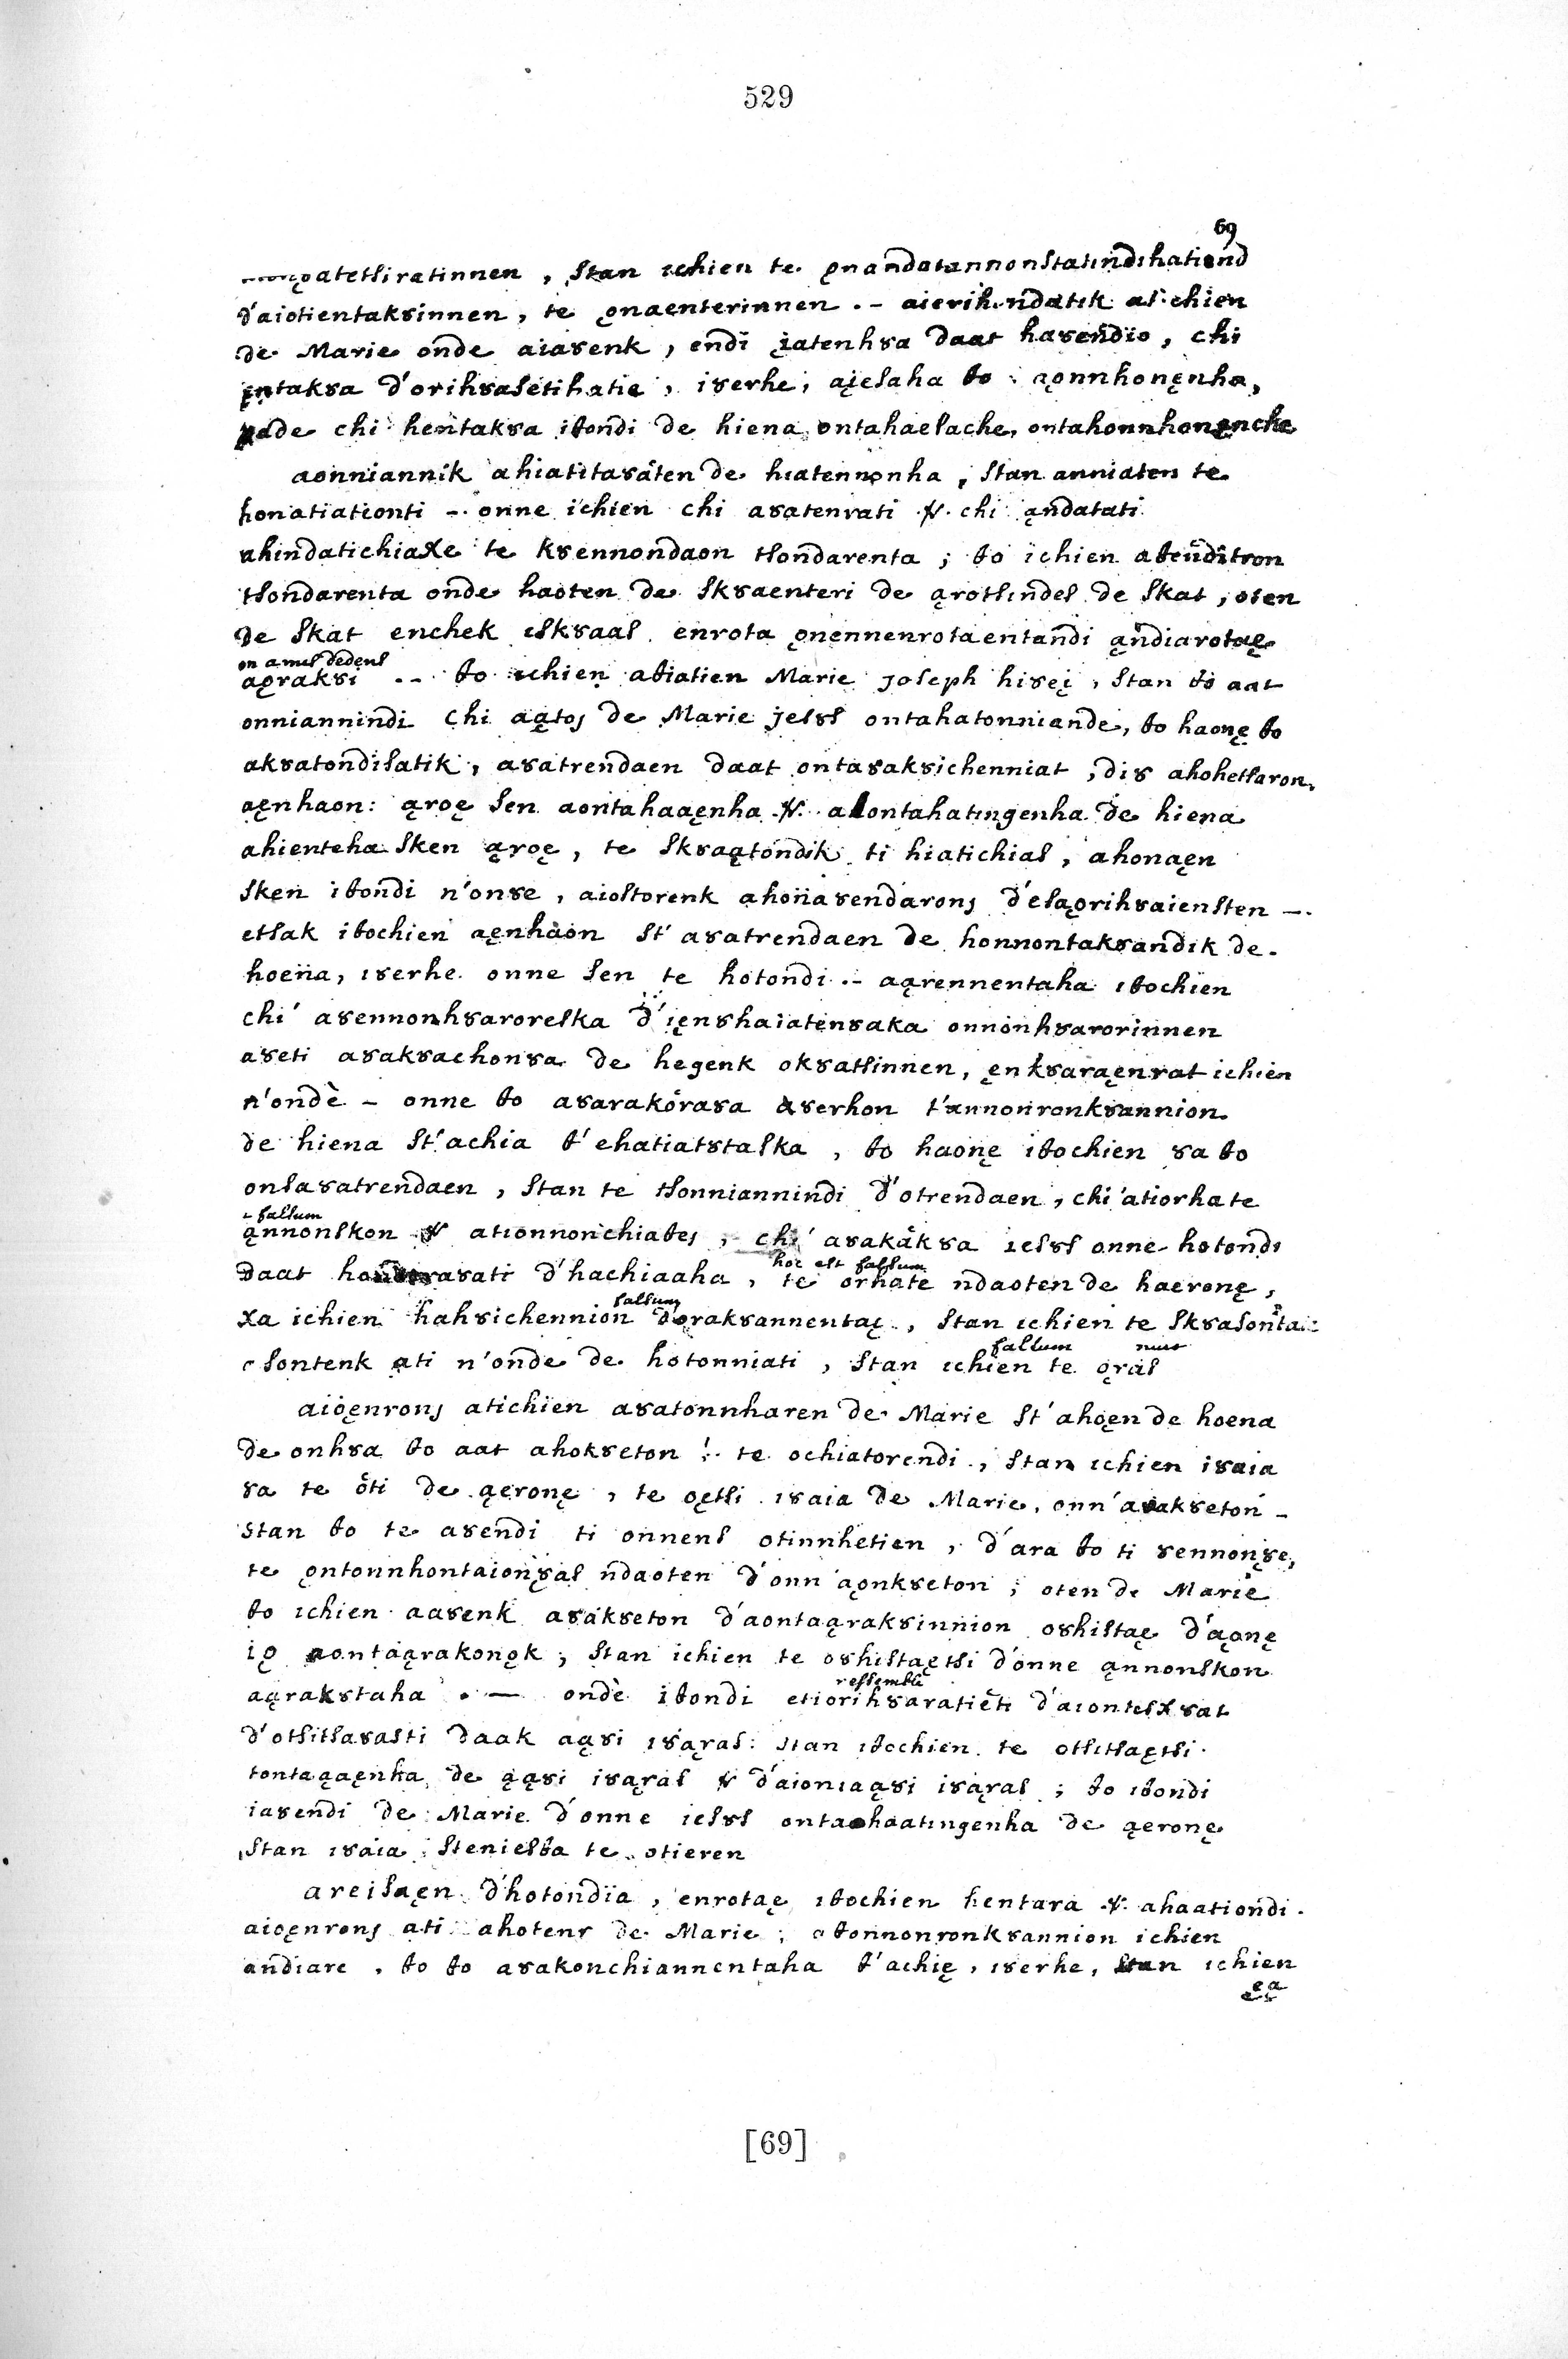 529
69
ǫatetsiratinnen, stan ichien te ǫnandatannonstatindihatiend
d'aiotientakȣinnen, te ǫnaenterinnen .- aierihȣndatik atichien
de Marie onde aiaȣenk, endi įatenhȣa daat haȣendio, chi
įntakȣa d'orihȣasetihatie, iȣerhe, aįesaha to ąonnhonęnha,
ȣade chi hentakȣa itondi de hiena ontahaesache, ontahonnhonęnche
aonniannik ahiatitaȣaten de hiatennonha, stan anniaten te
honatiationti -. onne ichien chi aȣatenrati & chi ąndatati
ahindatichiaxe te kȣennondaon tsondarenta ; to ichien atenditron
tsondarenta onde haoten de skȣaenteri de ąrotsindes de skat, oten
de skat enchek iskȣaas enrota ǫnennenrotaentandi ąndiarotaę
on a mis dedens
aǫrakȣi .- to ichien atiatien Marie joseph hiȣeį, stan to aat
onniannindi chi aątoj de Marie jesȣs ontahatonniande, to haonę to
akȣatondisatik, aȣatrendaen daat ontaȣakȣichenniat, diȣ ahohetsaron,
aęnhaon: ąroę sen aontahaaęnha & aontahatingenha de hiena
ahienteha sken ąroę, te skȣaątondik ti hiatichias, ahonaęn
sken itondi n'onȣe, aiostorenk ahonaȣendaronj d'esaǫrihȣaiensten -.
etsak itochien aęnhaon st' aȣatrendaen de honnontakȣandik de.
hoena, iȣerhe onne sen te hotondi .- aąrennentaha itochien
chi' aȣennonhȣaroreska d'ięnȣhaiatenȣaka onnonhȣarorinnen
aȣeti aȣakȣachonȣa de hegenk okȣatsinnen, ęnkȣaraęnrat ichien
n'ondè - onne to aȣarakoraȣa aȣerhon t'annonronkȣannion
de hiena st'achia t'ehatiatȣtaska, to haonę itochien ȣa to
onsaȣatrendaen, stan te tsonniannindi d'otrendaen, chi'atiorhate
falsum
ąnnonskon & ationnonchiatej, chi' aȣakakȣa iesȣs onne hotondi
hoc est falsum
daat aȣati d'hachiaaha, te orhate ndaoten de haeronę,
falsum
xa ichien hahȣichennion dǫrakȣannentaę, stan ichien te skȣasonta
falsum
sontenk ati n'onde de hotonniati, stan ichien te ǫras
aiǫęnronj atichien aȣatonnharen de Marie st'ahoęn de hoena
de onhȣa to aat ahokȣeton !. te ochiatorendi, stan ichien iȣaia
ȣa te oti de ąeronę, te oętsi iȣaia de Marie, onn'aȣakȣeton -
stan to te aȣendi ti onnens otinnhetien, d'ara to ti ȣennonȣe,
te ǫntonnhontaionȣas ndaoten d'onn'aǫnkȣeton ; oten de Marie
to ichien aaȣenk aȣakȣeton d'aontaąrakȣinnion oȣhistaę d'aąonę
iǫ aontaąrakonǫk ; stan ichien te oȣhistaętsi d'onne ąnnonskon
ressemble
aąrakȣtaha .- ondè itondi etiorihȣaratieti d'aiontesxȣat
d'otsitsaȣasti daak aąȣi iȣąras: stan itochien te otsitsaętsi
tontaąaęnha de ąąȣi iȣąras & d'aioniaąȣi iȣąras ; to itondi
iaȣendi de Marie d'onne iesȣs ontahaatingenha de ąeronę
stan iȣaia steniesta te otieren
areisaęn d'hotondia, enrotaę itochien hentara & ahaationdi.
aioęnronj ati ahotenr de Marie ; atonnonronkȣannion ichien
andiare, to to aȣakonchiannentaha t'achię, iȣerhe, stan ichien
ea
[69]